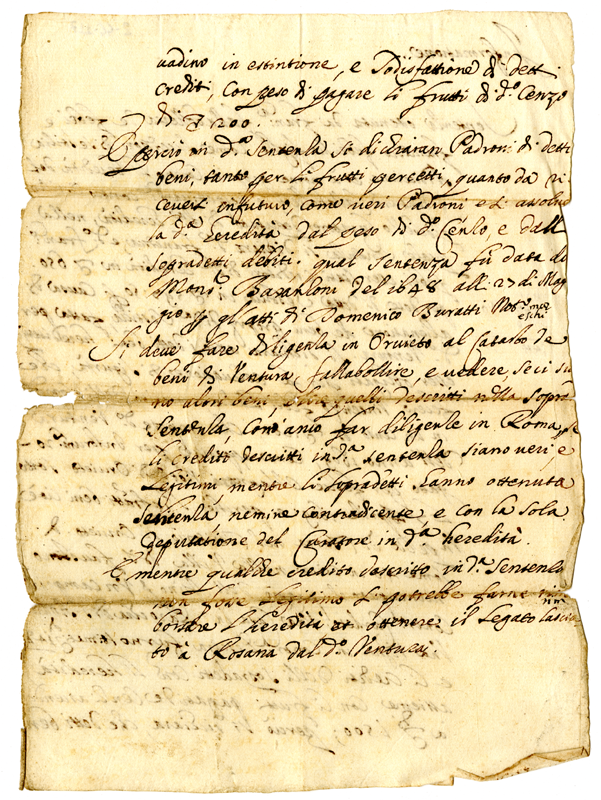 uadino in estintione, e sodisfattione di detti
crediti, con peso di pagare li frutti di d.º Cenzo
di 1200.
E perciò in d.ª Sentenza si dichiaran Padroni di detti
beni, tanto per li frutti percetti, quanto da ri
ceuersi in futuro, come ueri Padroni et assolu
la d.ª heredità dal peso di d.º Cenzo, e dalli
sopradetti debiti. qual sentenza fù data da
Mons.r del 1648 alli 27 di Mag
gio gl'atti di Domenico Buratti Not.º
Si deue fare diligenza in Oruieto al Catasto de
beni di Ventura fallabollire, e uedere, se ci su
no altri beni, oltre quelli descritti nella sopra
Sentenza, com'anco far diligenze in Roma, se
li crediti descritti in d.ª sentenza siano ueri, e
legitimi, mentre li sopradetti hanno ottenuta
sentenza, nemine contradicente, e con la sola
deputatione del Curatore in d.ª heredità.
E mentre qualche credito descritto in d.ª Sentenza
non fosse legitimo si potrebbe farne rim
borsare l'heredità et ottenere il Legato lascia
to à Rosana dal d.º Ventura.